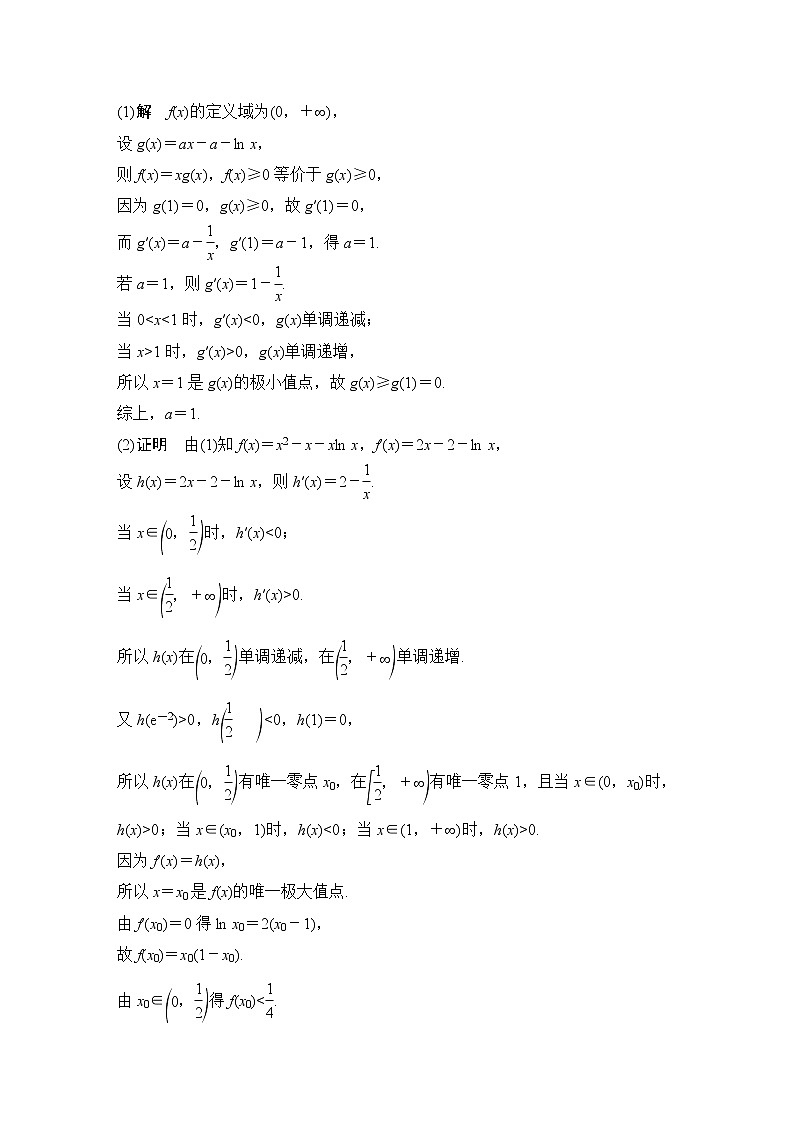 (1)解　f(x)的定义域为(0，＋∞)，
设 g(x)＝ax－a－ln x，
则 f(x)＝xg(x)，f(x)≥0 等价于 g(x)≥0，
因为 g(1)＝0，g(x)≥0，故 g′(1)＝0，
而 g′(x)＝a－1/x，g′(1)＝a－1，得 a＝1.
若 a＝1，则 g′(x)＝1－1/x.
当 0<x<1 时，g′(x)<0，g(x)单调递减；
当 x>1 时，g′(x)>0，g(x)单调递增，
所以 x＝1 是 g(x)的极小值点，故 g(x)≥g(1)＝0.
综上，a＝1.
(2)证明　由(1)知 f(x)＝x²－x－xln x，f′(x)＝2x－2－ln x，
设 h(x)＝2x－2－ln x，则 h′(x)＝2－1/x.
当 x∈(0，1/2)时，h′(x)<0；
当 x∈(1/2，＋∞)时，h′(x)>0.
所以 h(x)在(0，1/2)单调递减，在(1/2，＋∞)单调递增.
又 h(e⁻²)>0，h(1/2)<0，h(1)＝0，
所以 h(x)在(0，1/2)有唯一零点 x₀，在[1/2，＋∞)有唯一零点 1，且当 x∈(0，x₀)时，
h(x)>0；当 x∈(x₀，1)时，h(x)<0；当 x∈(1，＋∞)时，h(x)>0.
因为 f′(x)＝h(x)，
所以 x＝x₀是 f(x)的唯一极大值点.
由 f′(x₀)＝0 得 ln x₀＝2(x₀－1)，
故 f(x₀)＝x₀(1－x₀).
由 x₀∈(0，1/2)得 f(x₀)<1/4.